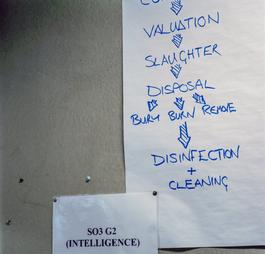 VALUATION
SLAUGHTER
DISPOSAL
BURY BURN REMOVE
DISINFECTION
+
CLEANING
SO3 G2
(INTELLIGENCE)